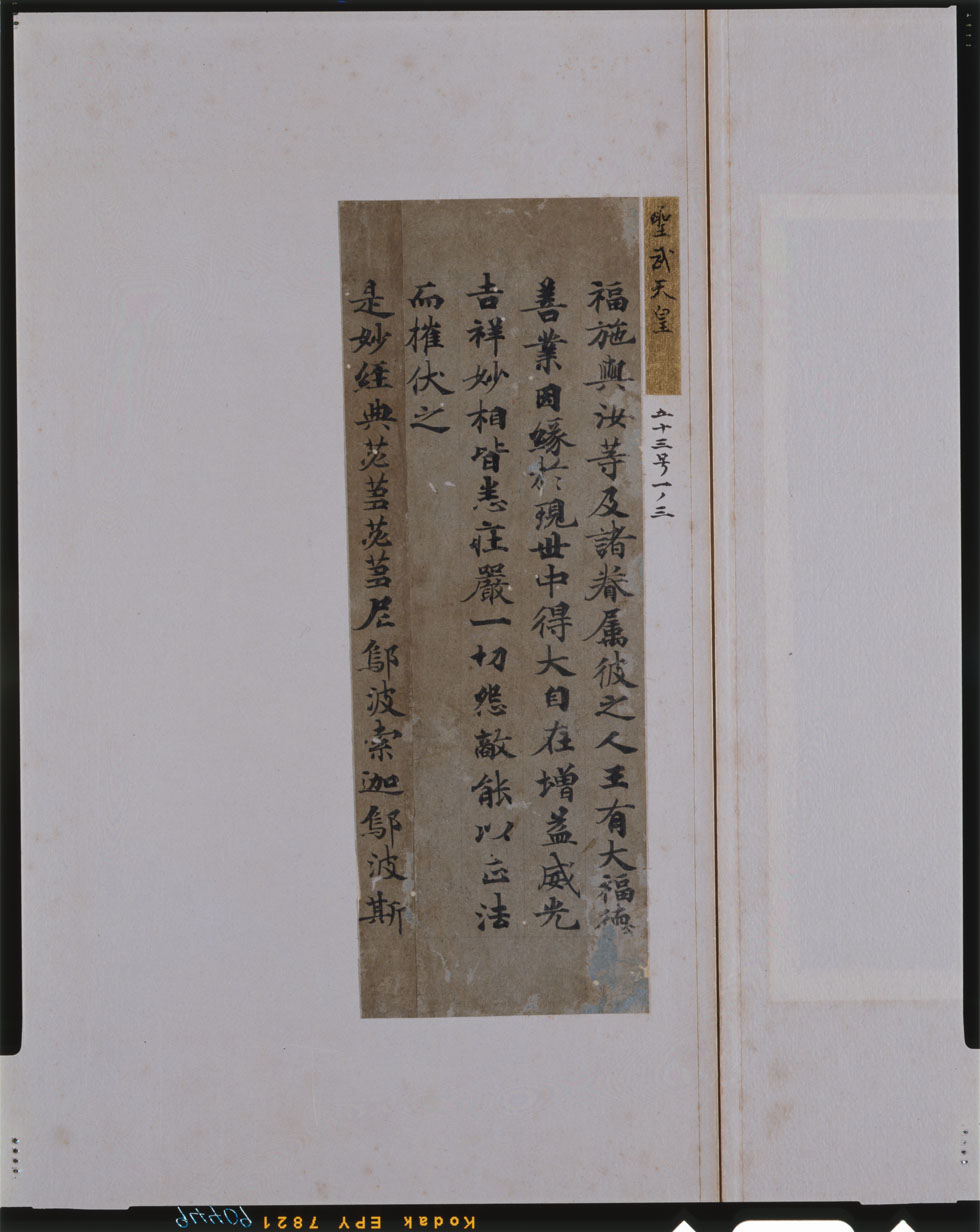 聖武天皇
五十三号一ノ三
福施與汝等及諸眷属彼之人王有大福德
善業因緣於現世中得大自在增益威光
吉祥妙相皆悉莊嚴一切怨敵能以正法
而摧伏之
是妙經典苾蒭苾蒭尼鄔波索迦鄔波斯
Kodak EPY 7821